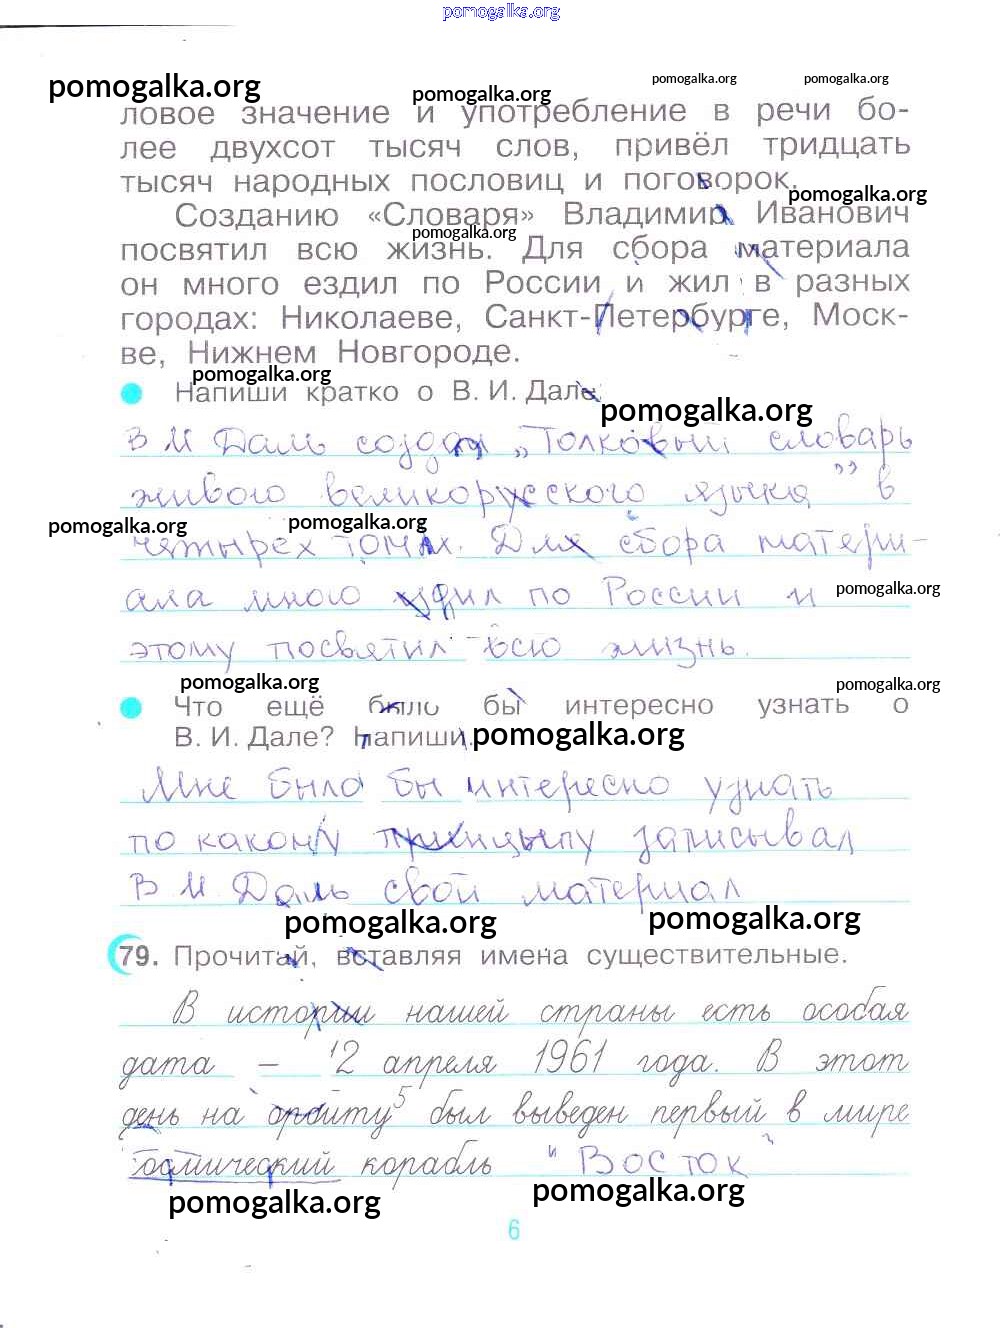 pomogalka.org
pomogalka.org pomogalka.org pomogalka.org pomogalka.org
ловое значение и употребление в речи бо-
лее двухсот тысяч слов, привёл тридцать
тысяч народных пословиц и поговорок.
pomogalka.org
Созданию «Словаря» Владимир Иванович
pomogalka.org
посвятил всю жизнь. Для сбора материала
он много ездил по России и жил в разных
городах: Николаеве, Санкт-Петербурге, Моск-
ве, Нижнем Новгороде.
pomogalka.org
Напиши кратко о В. И. Дале.
pomogalka.org
В И Даль создал „Толковый словарь
живого великорусского языка” в
pomogalka.org pomogalka.org
четырёх томах. Для сбора матери-
ала много ездил по России и
pomogalka.org
этому посвятил всю жизнь.
pomogalka.org pomogalka.org
Что ещё было бы интересно узнать о
В. И. Дале? Напиши.
pomogalka.org
Мне было бы интересно узнать
по какому принцыпу записывал
В И Даль свой материал
pomogalka.org pomogalka.org
79. Прочитай, вставляя имена существительные.
В истории нашей страны есть особая
дата – 12 апреля 1961 года. В этот
день на орбиту⁵ был выведен первый в мире
космический корабль "Восток"
pomogalka.org pomogalka.org
6